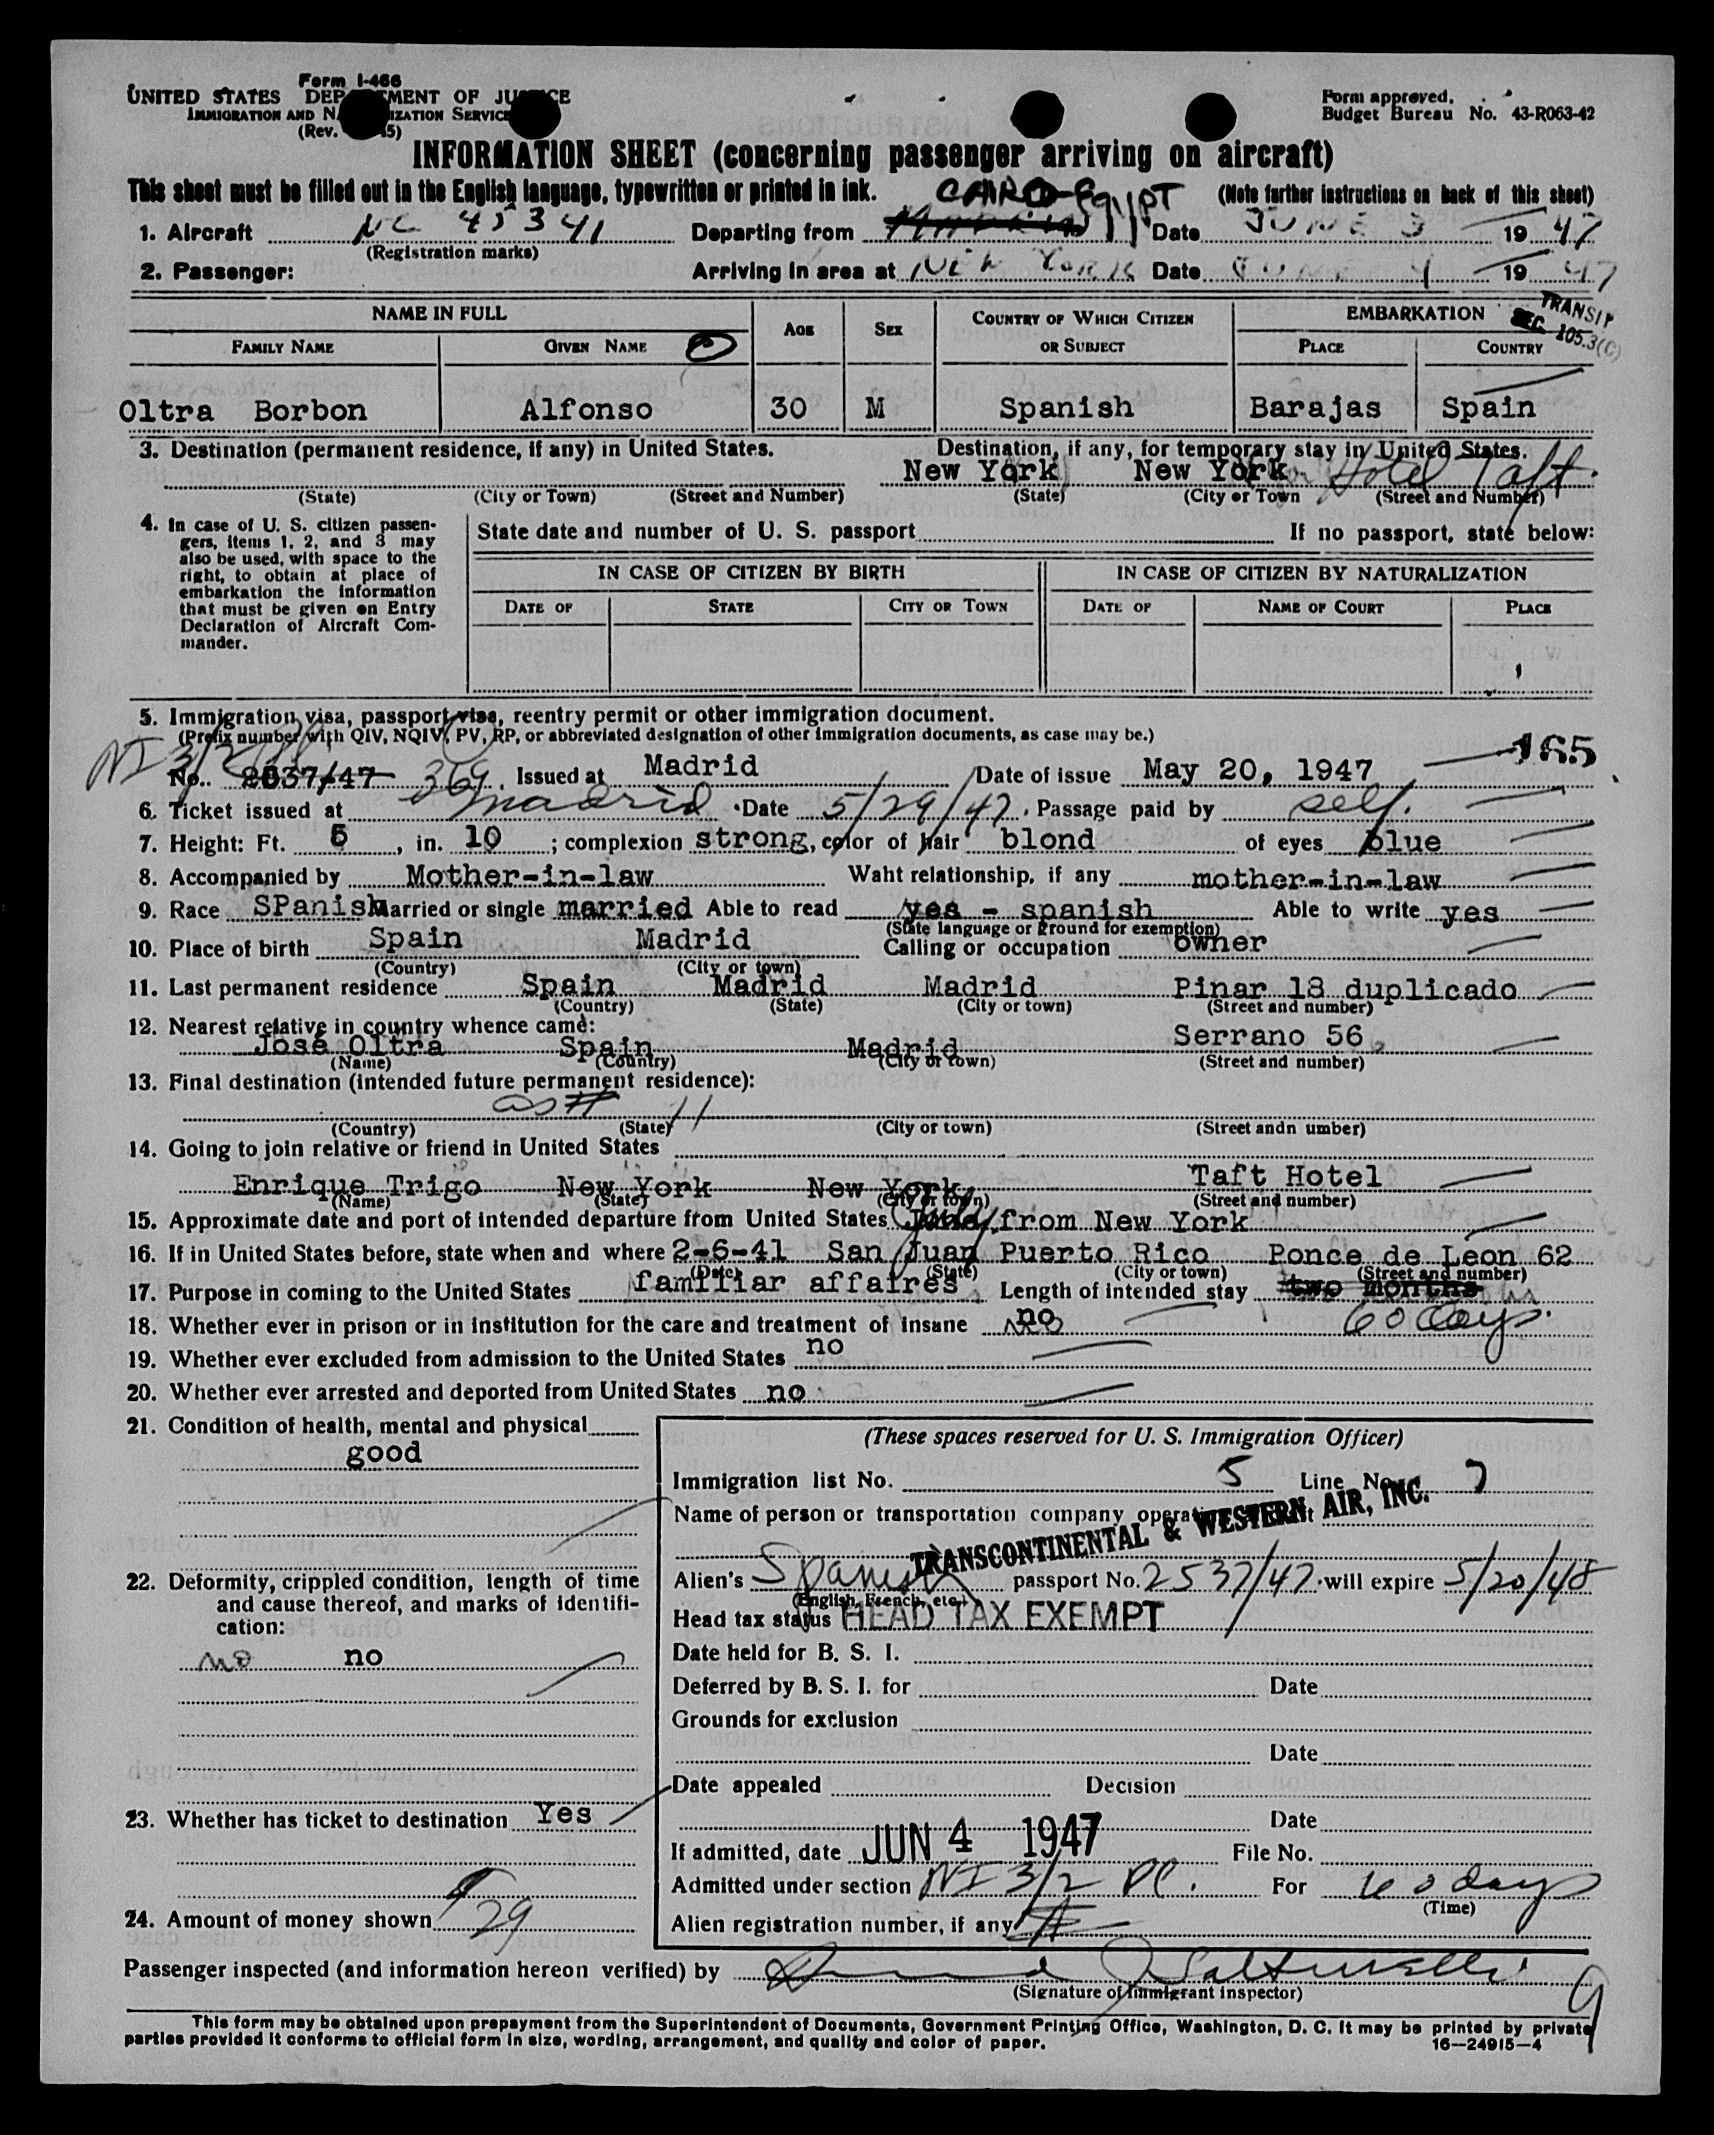 Form I-466
UNITED STATES DEP TMENT OF JU CE
IMMIGRATION AND N IZATION SERVICE
(Rev. 5)
Form approved.
Budget Bureau No. 43-R063-42
INFORMATION SHEET (concerning passenger arriving on aircraft)
This sheet must be filled out in the English language, typewritten or printed in ink. CAIRO-Egypt (Note further instructions on back of this sheet)
1. Aircraft NC 45341 Departing from Date JUNE 3 19 47
(Registration marks)
2. Passenger: Arriving in area at NEW YORK Date JUNE 4 19 47
NAME IN FULL AGE SEX COUNTRY OF WHICH CITIZEN OR SUBJECT EMBARKATION TRANSIT
SEC. 105.3(C)
FAMILY NAME GIVEN NAME PLACE COUNTRY
Oltra Borbon Alfonso 30 M Spanish Barajas Spain
3. Destination (permanent residence, if any) in United States. Destination, if any, for temporary stay in United States.
New York New York Hotel Taft
(State) (City or Town) (Street and Number) (State) (City or Town (Street and Number)
4. In case of U. S. citizen passen-
gers, items 1, 2, and 3 may
also be used, with space to the
right, to obtain at place of
embarkation the information
that must be given on Entry
Declaration of Aircraft Com-
mander.
State date and number of U. S. passport If no passport, state below:
IN CASE OF CITIZEN BY BIRTH IN CASE OF CITIZEN BY NATURALIZATION
DATE OF STATE CITY OR TOWN DATE OF NAME OF COURT PLACE
5. Immigration visa, passport visa, reentry permit or other immigration document.
(Prefix number with QIV, NQIV, PV, RP, or abbreviated designation of other immigration documents, as case may be.)
No. 2537/47 369 Issued at Madrid Date of issue May 20, 1947 165
6. Ticket issued at Madrid Date 5/29/47. Passage paid by self.
7. Height: Ft. 5, in. 10; complexion strong, color of hair blond of eyes blue
8. Accompanied by Mother-in-law Waht relationship, if any mother-in-law
9. Race SPanish Married or single married Able to read yes - spanish Able to write yes
(State language or ground for exemption)
10. Place of birth Spain Madrid Calling or occupation owner
(Country) (City or town)
11. Last permanent residence Spain Madrid Madrid Pinar 18 duplicado
(Country) (State) (City or town) (Street and number)
12. Nearest relative in country whence came:
José Oltra Spain Madrid Serrano 56
(Name) (Country) (City or town) (Street and number)
13. Final destination (intended future permanent residence):
as # 11
(Country) (State) (City or town) (Street andn umber)
14. Going to join relative or friend in United States
Enrique Trigo New York New York Taft Hotel
(Name) (State) (City or town) (Street and number)
15. Approximate date and port of intended departure from United States from New York
16. If in United States before, state when and where 2-6-41 San Juan Puerto Rico Ponce de Leon 62
(Date) (State) (City or town) (Street and number)
17. Purpose in coming to the United States familiar affaires Length of intended stay two months
60 days.
18. Whether ever in prison or in institution for the care and treatment of insane no
19. Whether ever excluded from admission to the United States no
20. Whether ever arrested and deported from United States no
21. Condition of health, mental and physical
good
22. Deformity, crippled condition, length of time
and cause thereof, and marks of identifi-
cation:
no no
23. Whether has ticket to destination Yes
24. Amount of money shown 29
(These spaces reserved for U. S. Immigration Officer)
Immigration list No. 5 Line No. 7
Name of person or transportation company
TRANSCONTINENTAL & WESTERN AIR, INC.
Alien's Spanish passport No. 2537/47 will expire 5/20/48
(English, French, etc.)
Head tax status HEAD TAX EXEMPT
Date held for B. S. I.
Deferred by B. S. I. for Date
Grounds for exclusion
Date
Date appealed Decision
Date
If admitted, date JUN 4 1947 File No.
Admitted under section NI 3/2 For 60 days
(Time)
Alien registration number, if any
Passenger inspected (and information hereon verified) by
(Signature of immigrant inspector)
9
This form may be obtained upon prepayment from the Superintendent of Documents, Government Printing Office, Washington, D. C. It may be printed by private
parties provided it conforms to official form in size, wording, arrangement, and quality and color of paper. 16—24915—4